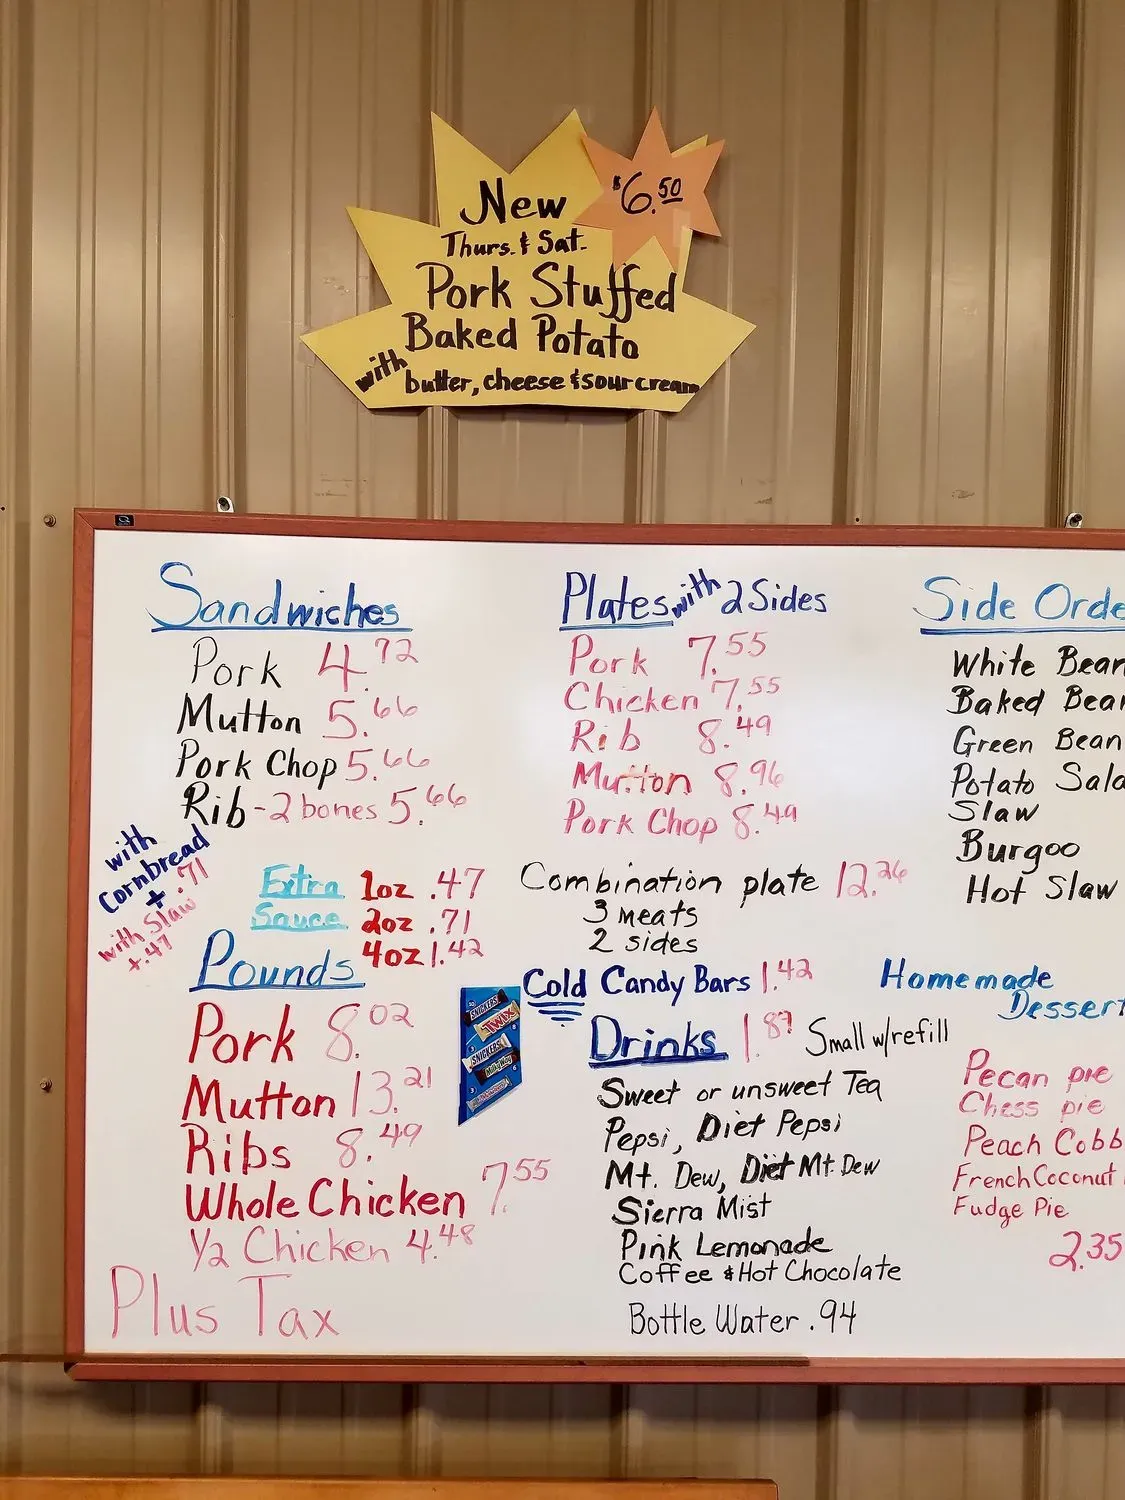 New
$6.50
Thurs. & Sat.
Pork Stuffed
Baked Potato
with butter, cheese & sour cream
Sandwiches
Pork 4.72
Mutton 5.66
Pork Chop 5.66
Rib - 2 bones 5.66
with
Cornbread
+ .71
with Slaw
+.47
Extra Sauce
1oz .47
2oz .71
4oz 1.42
Pounds
Pork 8.02
Mutton 13.21
Ribs 8.49
Whole Chicken 7.55
1/2 Chicken 4.48
Plus Tax
Plates with 2 Sides
Pork 7.55
Chicken 7.55
Rib 8.49
Mutton 8.96
Pork Chop 8.49
Combination plate 12.26
3 meats
2 sides
Cold Candy Bars 1.42
SNICKERS
TWIX
SNICKERS
Milky Way
Drinks 1.89 Small w/refill
Sweet or unsweet Tea
Pepsi, Diet Pepsi
Mt. Dew, Diet Mt. Dew
Sierra Mist
Pink Lemonade
Coffee & Hot Chocolate
Bottle Water .94
Side Orde
White Bean
Baked Bea
Green Bean
Potato Sala
Slaw
Burgoo
Hot Slaw
Homemade
Dessert
Pecan pie
Chess pie
Peach Cobb
French Coconut
Fudge Pie
2.35